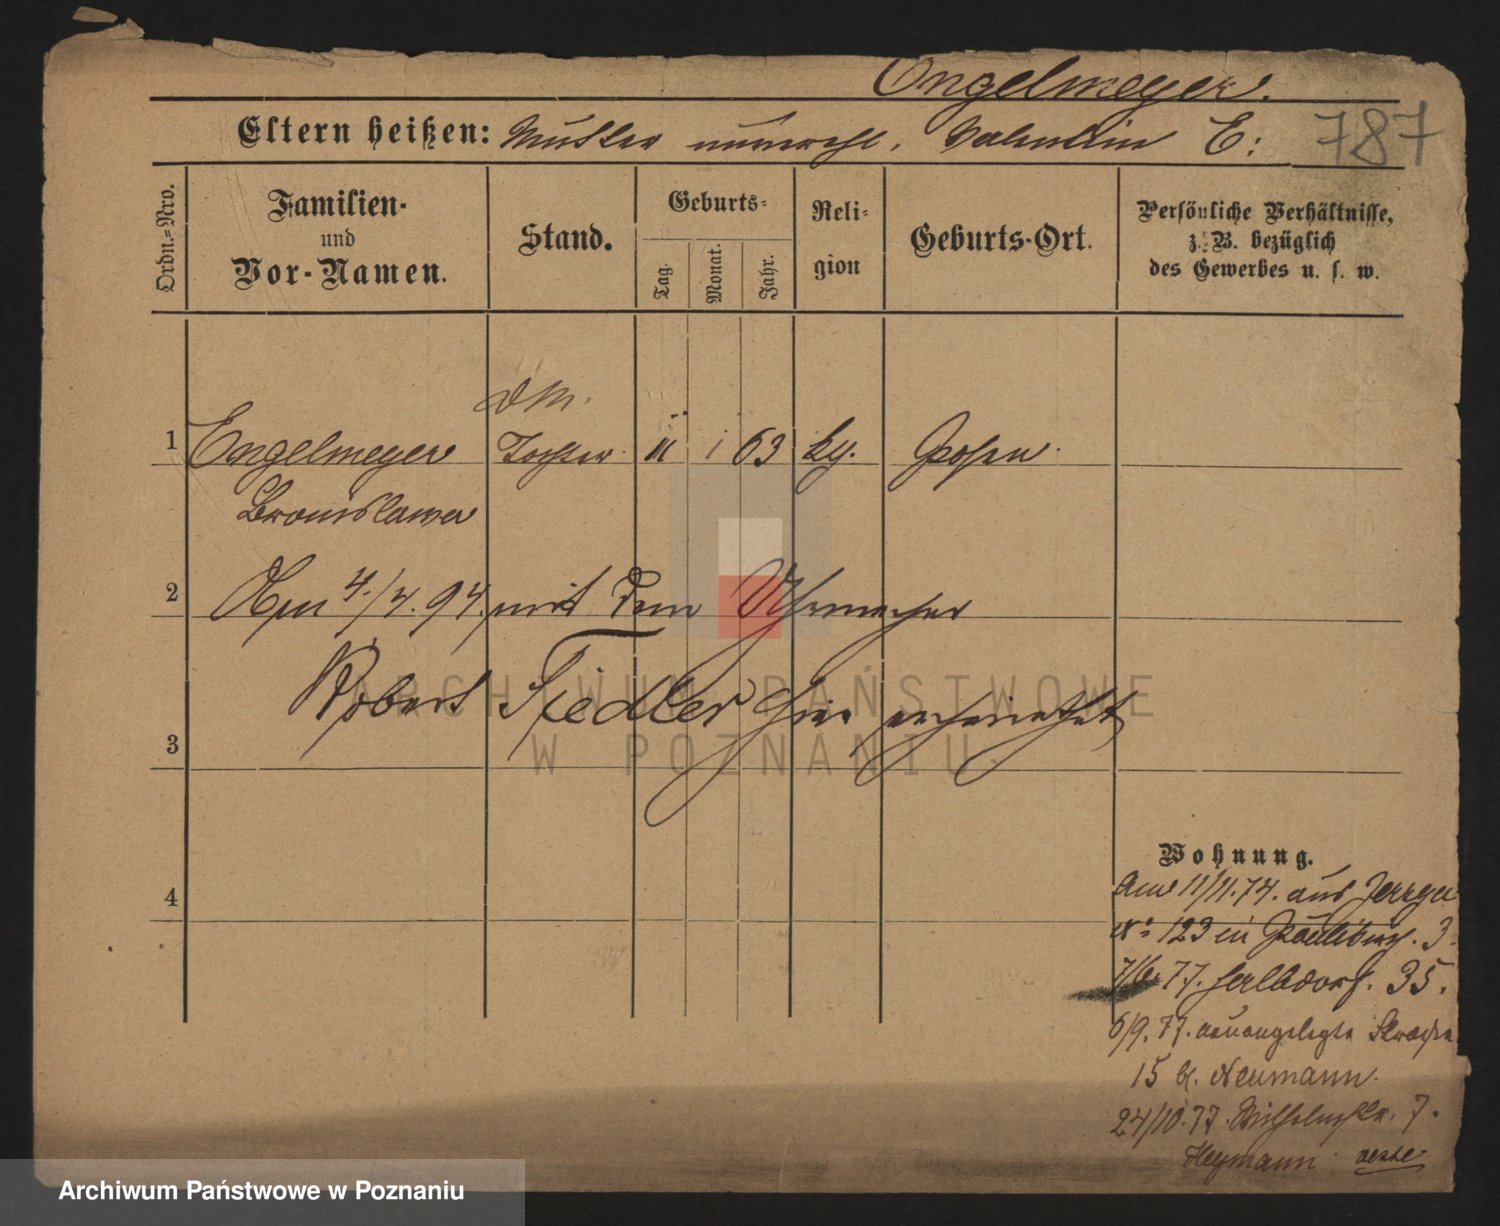 Engelmeyer.
Eltern heißen: Mutter unverehl. Valentin E:
787
Ordn.=Nro.
Familien-
und
Vor-Namen.
Stand.
Geburts-
Tag.
Monat.
Jahr.
Reli-
gion
Geburts-Ort.
Persönliche Verhältnisse,
z. B. bezüglich
des Gewerbes u. s. w.
1 Engelmeyer Tochter 11 1 63 kg. Posen.
Bronislawa
2 4./4. 94. mit dem Uhrmacher
Robert Fiedler hier verheirathet
3
4
Wohnung.
Am 11/11.74. aus
No 123 in Paulikirch. 3.
7/6. 77. Halbdorf. 35.
6/9. 77. neuangelegte Strasse
15 b. Neumann.
24/10.77. Wilhelmstr. 7.
Heymann
ARCHIWUM PAŃSTWOWE
W POZNANIU
Archiwum Państwowe w Poznaniu